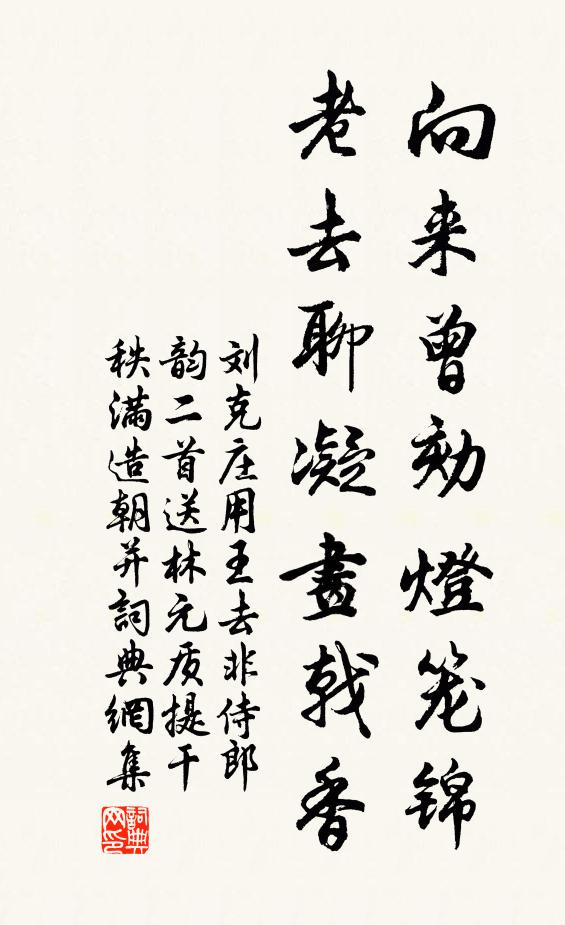 向来曾劾燈笼锦
老去聊凝畫戟香
刘克庄用王去非侍郎
韵二首送林元质提干
秩满造朝并詞典網集
詞典
网印